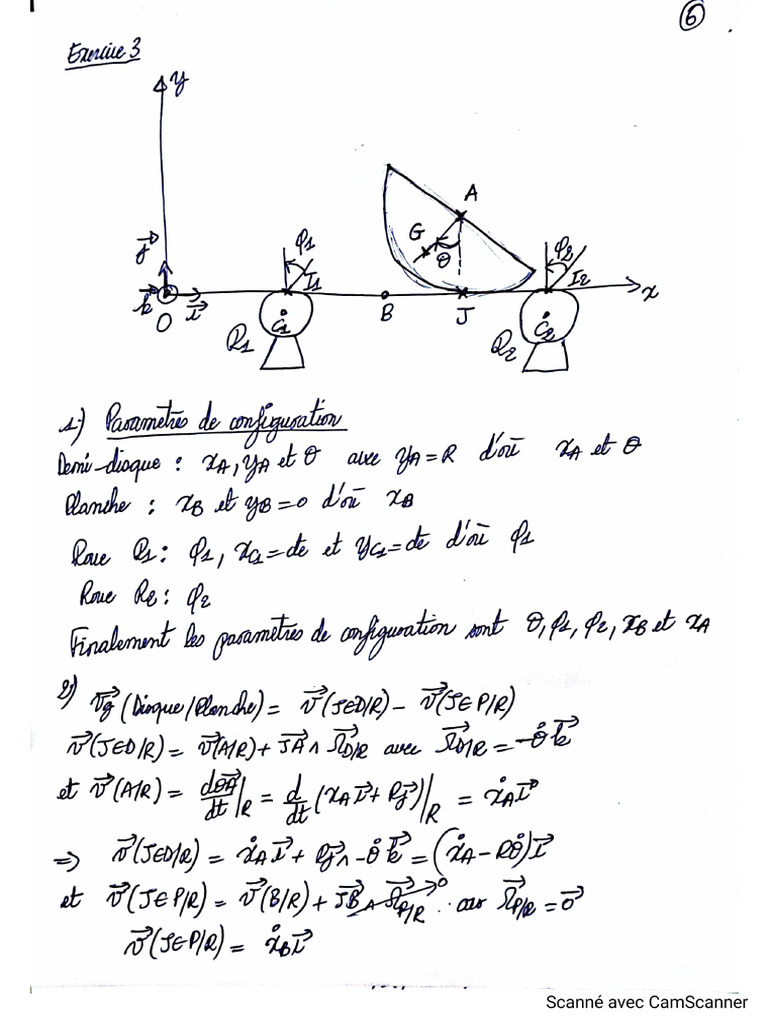 6
Exercice 3
y
A
G
θ
φ1
I1
φ2
I2
j⃗
k⃗
O
i⃗
C1
B
J
C2
x
Q1
Q2
1.) Paramètres de configuration
Demi-disque : xA, yA et θ avec yA = R d'où xA et θ
Planche : xB et yB = 0 d'où xB
Roue R1 : φ1, xC1 = cte et yC1 = cte d'où φ1
Roue R2 : φ2
Finalement les paramètres de configuration sont θ, φ1, φ2, xB et xA
2) V⃗g (Disque/Planche) = v⃗(J∈D/R) - v⃗(J∈P/R)
v⃗(J∈D/R) = v⃗(A/R) + JA⃗ ∧ Ω⃗D/R avec Ω⃗D/R = -θ̇ k⃗
et v⃗(A/R) = dOA⃗/dt |R = d/dt (xA i⃗ + R j⃗) |R = ẋA i⃗
⇒ v⃗(J∈D/R) = ẋA i⃗ + R j⃗ ∧ -θ̇ k⃗ = (ẋA - Rθ̇) i⃗
et v⃗(J∈P/R) = v⃗(B/R) + JB⃗ ∧ Ω⃗P/R → 0 car Ω⃗P/R = 0⃗
v⃗(J∈P/R) = ẋB i⃗
Scanné avec CamScanner